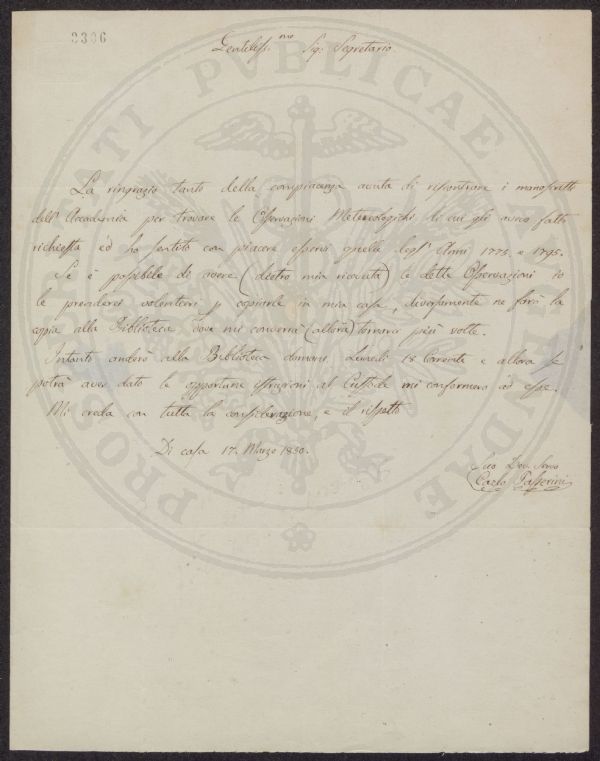 2306
Gentiliss.mo Sig: Segretario
La ringrazio tanto della compiacenza avuta di riscontrare i manoscritti
dell'Accademia per trovare le Osservazioni Meteorologiche, di cui gli avevo fatto
richiesta ed ho sentito con piacere esservi quelle degl'Anni 1775. e 1795.
Se è possibile di avere (dietro mia ricevuta) le dette Osservazioni io
le prenderei volentieri p copiarle in mia casa, diversamente ne farò la
copia alla Biblioteca, dove mi converrà (allora) tornarvi più volte.
Intanto anderò alla Biblioteca domani, Lunedì 18 Corrente e allora se
potrà aver dato le opportune istruzioni al Custode mi conformerò ad esse.
Mi creda con tutta la considerazione, e il rispetto
Di casa 17. Marzo 1850.
Suo Dev. Servo
Carlo Passerini
PROSPERITATI PVBLICAE